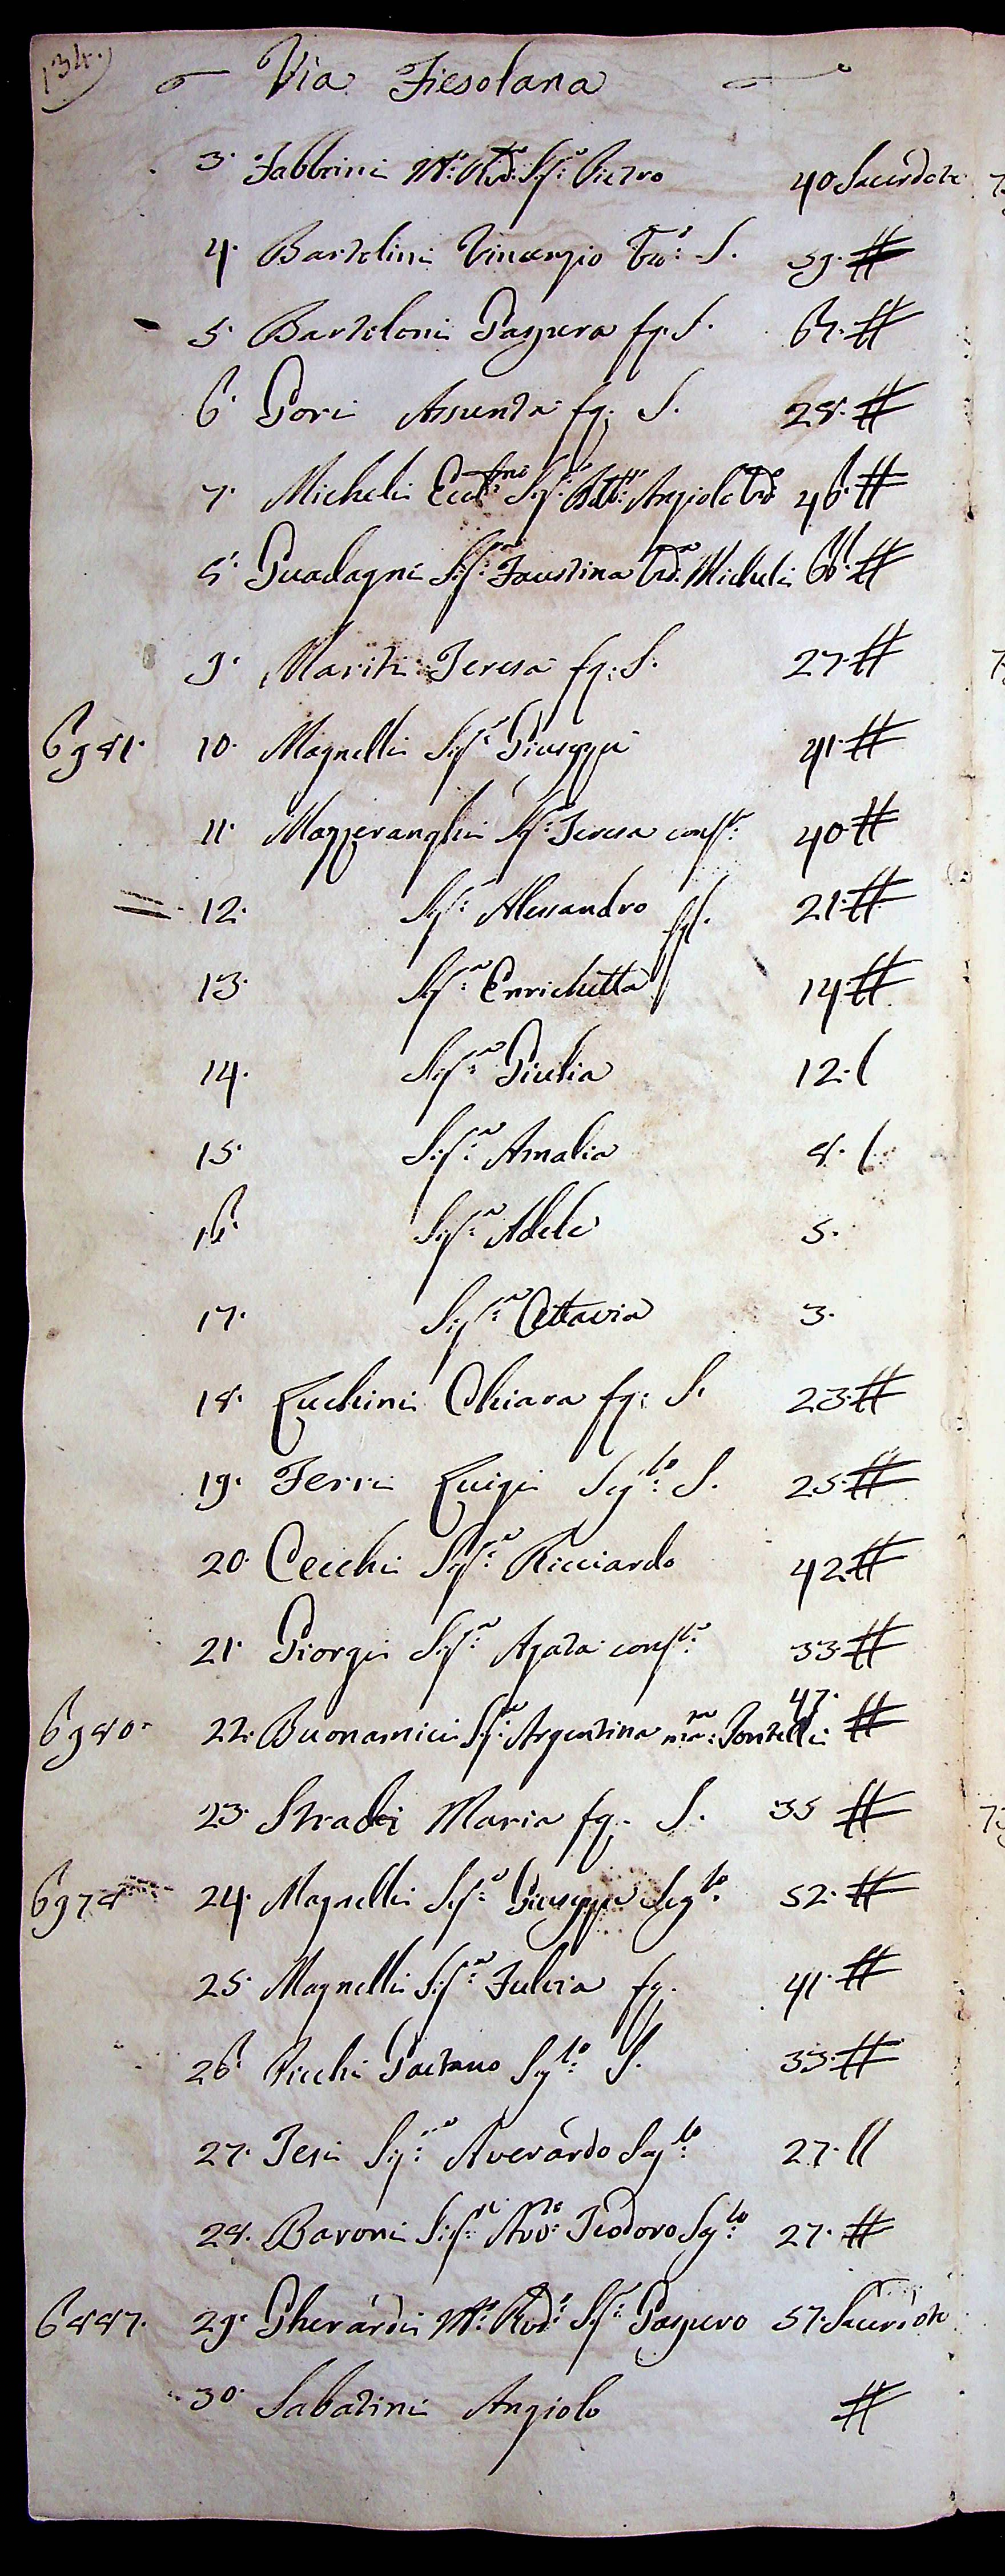 134.
Via Fiesolana
3. Fabbrini M.º Rdo. Sigr. Pietro 40 Sacerdote
4. Bartolini Vincenzio S. 59. #
5. Bartoloni Gaspera fg. S. 67. #
6. Gori Assunta fg. S. 28. #
7. Micheli Eccl.mo Sigr. Angiolo 46. #
8. Guadagni Sig.ra Faustina Micheli 66. #
9. Mariti Teresa fg. S. 27. #
6981. 10. Magnelli Sigr. Giuseppe 41. #
11. Mazzeranghi Sig.ra Teresa cons.te 40 #
12. Sigr. Alessandro fgl. 21. #
13. Sig.a Enrichetta 14. #
14. Sig.a Giulia 12. (
15. Sig.a Amalia 8. (
16. Sig.a Adele 5.
17. Sig.a Ottavia 3.
18. Luchini Chiara fg. S. 23. #
19. Ferri Luigi Sg.lo S. 25. #
20. Cecchi Sigr. Ricciardo 42. #
21. Giorgi Sig.a Agata cons.te 33. #
6980. 22. Buonamici Sig.ra Argentina Pontelli 47. #
23. Maria fg. S. 35 #
6978 24. Magnelli Sigr. Giuseppe Scg.lo 52. #
25. Magnelli Sig.a Fulvia fg. 41. #
26. Gaetano Sg.lo S. 33. #
27. Jesi Sigr. Averardo Sg.lo 27. //
28. Baroni Sigr. Avv. Teodoro Sg.lo 27. #
6887. 29. Gherardi M.º Rdo. Sigr. Gaspero 57. Sacerdote
30. Sabatini Angiolo #